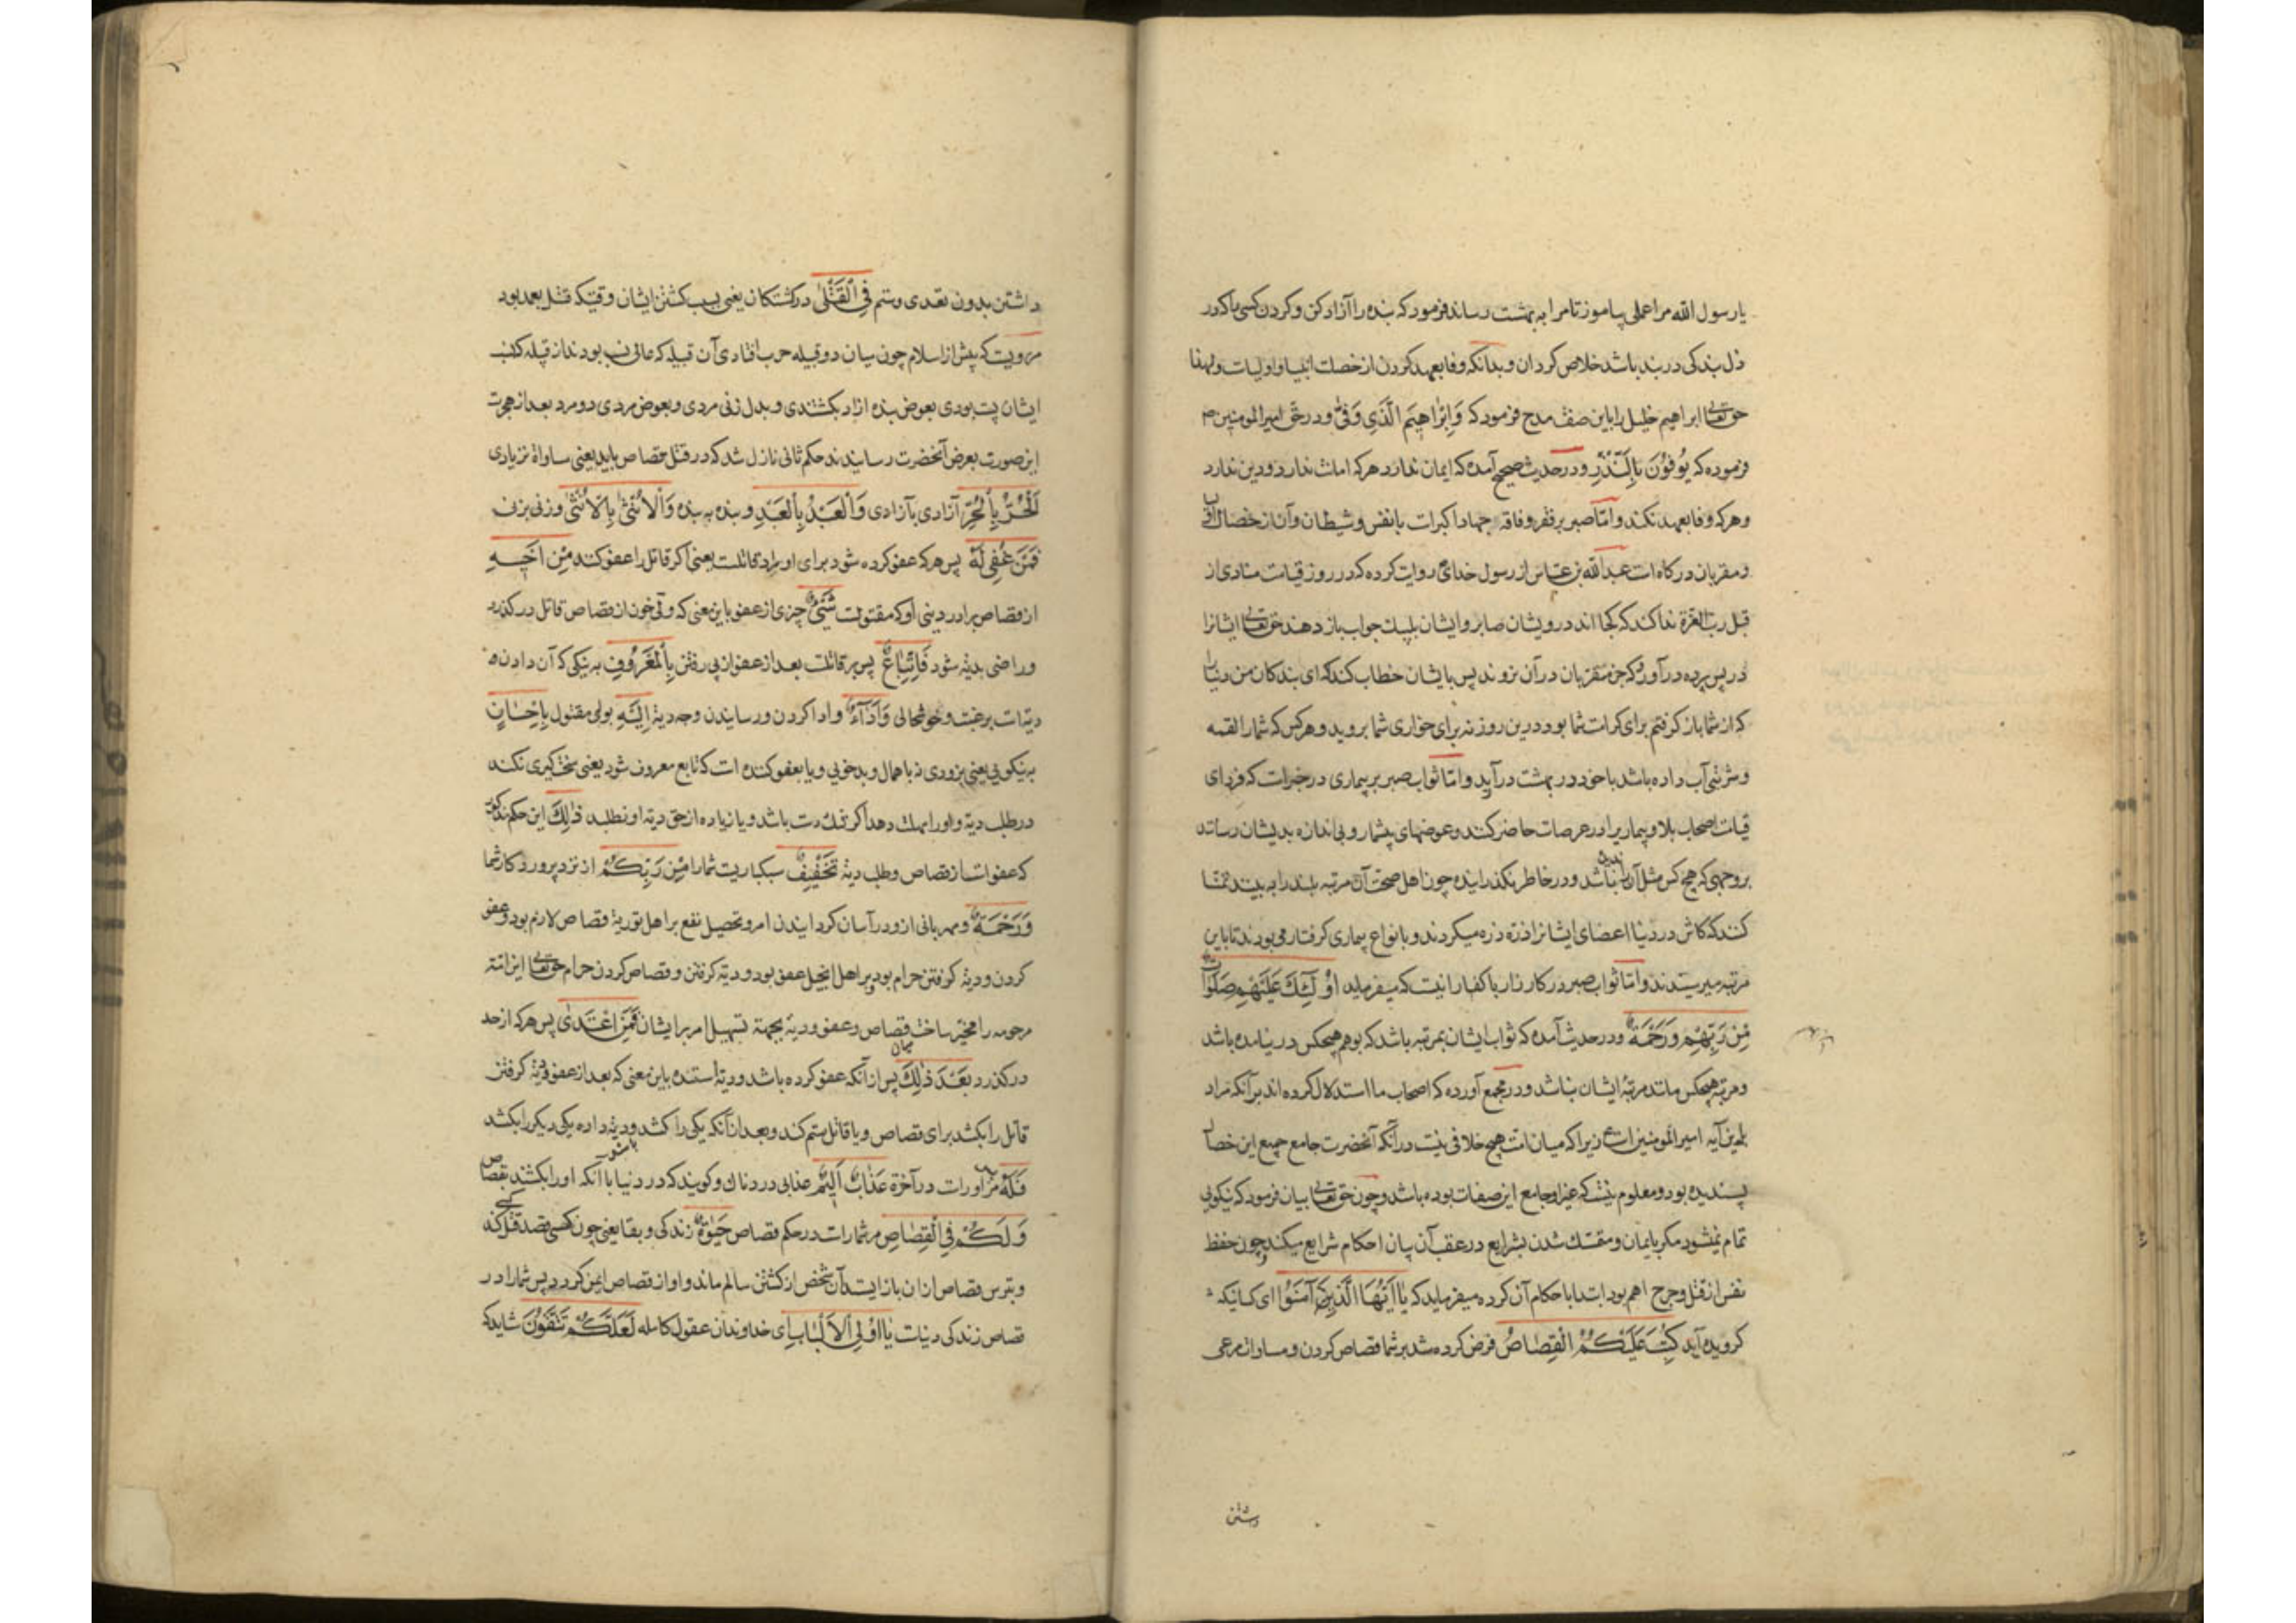 یا رسول الله مرا عملی بیاموز تا مرا به بهشت رساند فرمود که بنده را آزاد کن و کردن کسی را که در
ذل بندکی در بند باشد خلاص کردان و بدانکه وفا بعهد کردن از خصلت انبیا و اولیات و لهذا
حق تعالی ابراهیم خلیل را باین صفت مدح فرمود که وَاِبْرٰاهِیمَ الَّذِی وَفّٰی و در حق امیر المومنین
فرموده که یُوفُونَ بِالنَّذْرِ و در حدیث صحیح آمده که ایمان ندارد هرکه امانت ندارد و دین ندارد
و هرکه وفا بعهد نکند و امّا صبر بر فقر و فاقه جهاد اکبرات با نفس و شیطان و آن از خصال
و مقربان درکاه ات عبد الله بن عباس از رسول خدای روایت کرده که در روز قیامت منادی از
قبل رب العزة ندا کند که کجا اند درویشان صابر و ایشان بلبیک جواب باز دهند حق تعالی ایشانرا
در پس پرده در آورد که جز مقربان در آن نروند پس با ایشان خطاب کند که ای بندکان من دنیا را
که از شما باز کرفتم برای کرامت شما بود درین روز نه برای خواری شما بروید و هرکس که شما را لقمه
و شربتی آب داده باشد با خود در بهشت در آرید و امّا ثواب صبر بر بیماری در خبرات که فردای
قیامت اصحاب بلا و بیماریرا در عرصات حاضر کنند و عوضهای بیشمار و بی اندازه بدیشان رسانند
بر وجهی که هیچ کس مثل آن ندیده باشد و در خاطر نکذرانیده چون اهل صحت آن مرتبه بلند را به بینند تمنا
کنند که کاش در دنیا اعضای ایشانرا ذره ذره میکردند و بانواع بیماری کرفتار می بودند تا باین
مرتبه میرسیدند و امّا ثواب صبر در کارزار با کفار انیست که میفرماید اُوْلٰئِكَ عَلَیْهِمْ صَلَوٰاتٌ
مِنْ رَبِّهِمْ وَرَحْمَةٌ و در حدیث آمده که ثواب ایشان بمرتبه باشد که بوهم هیچکس در نیامده باشد
و مرتبه هیچکس مانند مرتبهٔ ایشان نباشد و در مجمع آورده که اصحاب ما استدلال کرده اند بر آنکه مراد
باین آیه امیر المومنین ات زیرا که میان امت هیچ خلافی نیست در آنکه آنحضرت جامع جمیع این خصال
پسندیده بود و معلوم نیست که غیر او جامع این صفات بوده باشد و چون حق تعالی بیان فرمود که نیکویی
تمام نمیشود مکر بایمان و متمسك شدن بشرایع در عقب آن بیان احکام شرایع میکند و چون حفظ
نفس از قتل و جرح اهم بود ابتدا باحکام آن کرده میفرماید که یٰا اَیُّهَا الَّذِینَ آمَنُوا ای کسانیکه
کرویده آید کُتِبَ عَلَیْکُمُ الْقِصٰاصُ فرض کرده شد بر شما قصاص کردن و مساوات مرعی
داشتن
داشتن بدون تعدی و ستم فِی الْقَتْلیٰ در کشتکان یعنی بسبب کشتن ایشان وقتیکه قتل بعمد بود
مرویست که پیش از اسلام چون میان دو قبیله حرب افتادی آن قبیله که عالی نسب بودند از قبیله که نسب
ایشان پست بودی بعوض بنده آزاد بکشتندی و بدل زنی مردی و بعوض مردی دو مرد بعد از هجرت
این صورت بعرض آنحضرت رسانیدند حکم ثانی نازل شد که در قتل قصاص باید یعنی مساواة نه زیادی
اَلْحُرُّ بِالْحُرِّ آزادی بآزادی وَالْعَبْدُ بِالْعَبْدِ و بنده به بنده وَالْاُنْثیٰ بِالْاُنْثیٰ و زنی بزنی
فَمَنْ عُفِیَ لَهُ پس هرکه عفو کرده شود برای او مراد قاتلست یعنی اکر قاتل را عفو کنند مِنْ اَخِیهِ
از قصاص برادر دینی او که مقتولست شَیْئٌ چیزی از عفو باین معنی که ولی خون از قصاص قاتل در کذرد
و راضی بدیه شود فَاتِّبٰاعٌ پس بر قاتلست بعد از عفو از پی رفتن بِالْمَعْرُوفِ به نیکی که آن دادن
دیت ات برغبت و خوشحالی وَاَدٰآءٌ و ادا کردن و رسانیدن وجه دیه اِلَیْهِ بولی مقتول بِاِحْسٰانٍ
به نیکویی یعنی بزودی نه باهمال و بدخویی و یا بعفو کننده ات که تابع معروف شود یعنی سخت کیری نکند
در طلب دیه و اورا مهلت دهد اکر تنك دست باشد و یا زیاده از حق دیه او نطلبد ذٰلِكَ این حکم مذکور
که عفوات از قصاص و طلب دیه تَخْفِیفٌ سبکباریست شما را مِنْ رَبِّکُمْ از نزد پروردکار شما
وَرَحْمَةٌ و مهربانی ازو در آسان کردانیدن امر و تحصیل نفع بر اهل توریة قصاص لازم بود و عفو
کردن و دیه کرفتن حرام بود و بر اهل انجیل عفو بود و دیه کرفتن و قصاص کردن حرام حق تعالی این امّة
مرحومه را مخیّر ساخت قصاص و عفو و دیه بجهة تسهیل امر بر ایشان فَمَنِ اعْتَدیٰ پس هرکه از حد
در کذرد بَعْدَ ذٰلِكَ پس از آنکه عفو کرده باشد و دیه استده باین معنی که بعد از عفو و دیه کرفتن
قاتل را بکشد برای قصاص و یا قاتل ستم کند و بعد از آنکه یکی را کشد و دیه داده یکی دیکر را بکشد
فَلَهُ مر اورات در آخرة عَذٰابٌ اَلِیمٌ عذابی دردناك و کویند که در دنیا با آنکه اورا بکشند بقصاص
وَلَکُمْ فِی الْقِصٰاصِ مر شما رات در حکم قصاص حَیٰوةٌ زندکی و بقا یعنی چون کسی قصد قتل کند
و بترس قصاص از ان باز ایستد آن شخص از کشتن سالم ماند و او از قصاص ایمن کردد پس شما را در
قصاص زندکی دنیات یٰا اُوْلِی الْاَلْبٰابِ ای خداوندان عقول کامله لَعَلَّکُمْ تَتَّقُونَ شاید که